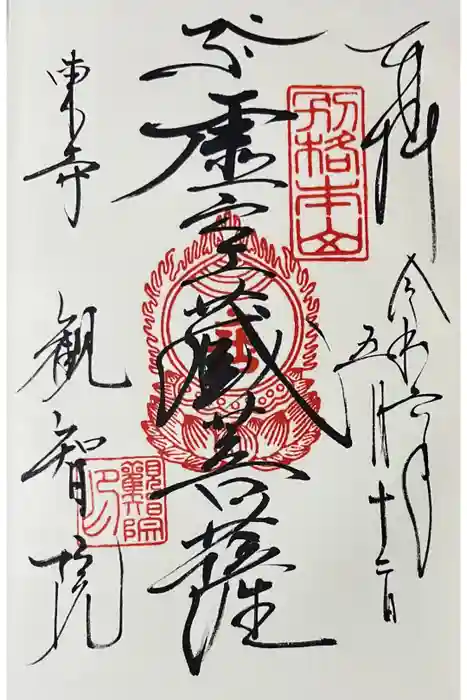 奉拝
令和六年
五月十二日
別格本山
虚空蔵菩薩
東寺
観智院